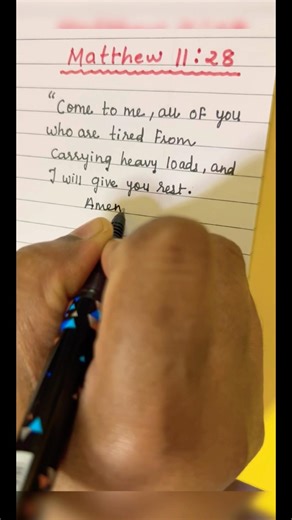 Matthew 11:28
“Come to me, all of you
who are tired From
carrying heavy loads, and
I will give you rest.
Amen